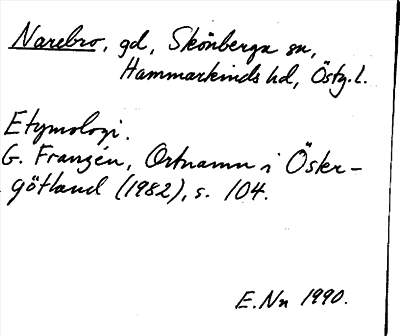 Narebro, gd, Skönberga sn,
Hammarkinds hd, Östg. l.
Etymologi.
G. Franzén, Ortnamn i Öster-
götland (1982), s. 104.
E. Nn 1990.